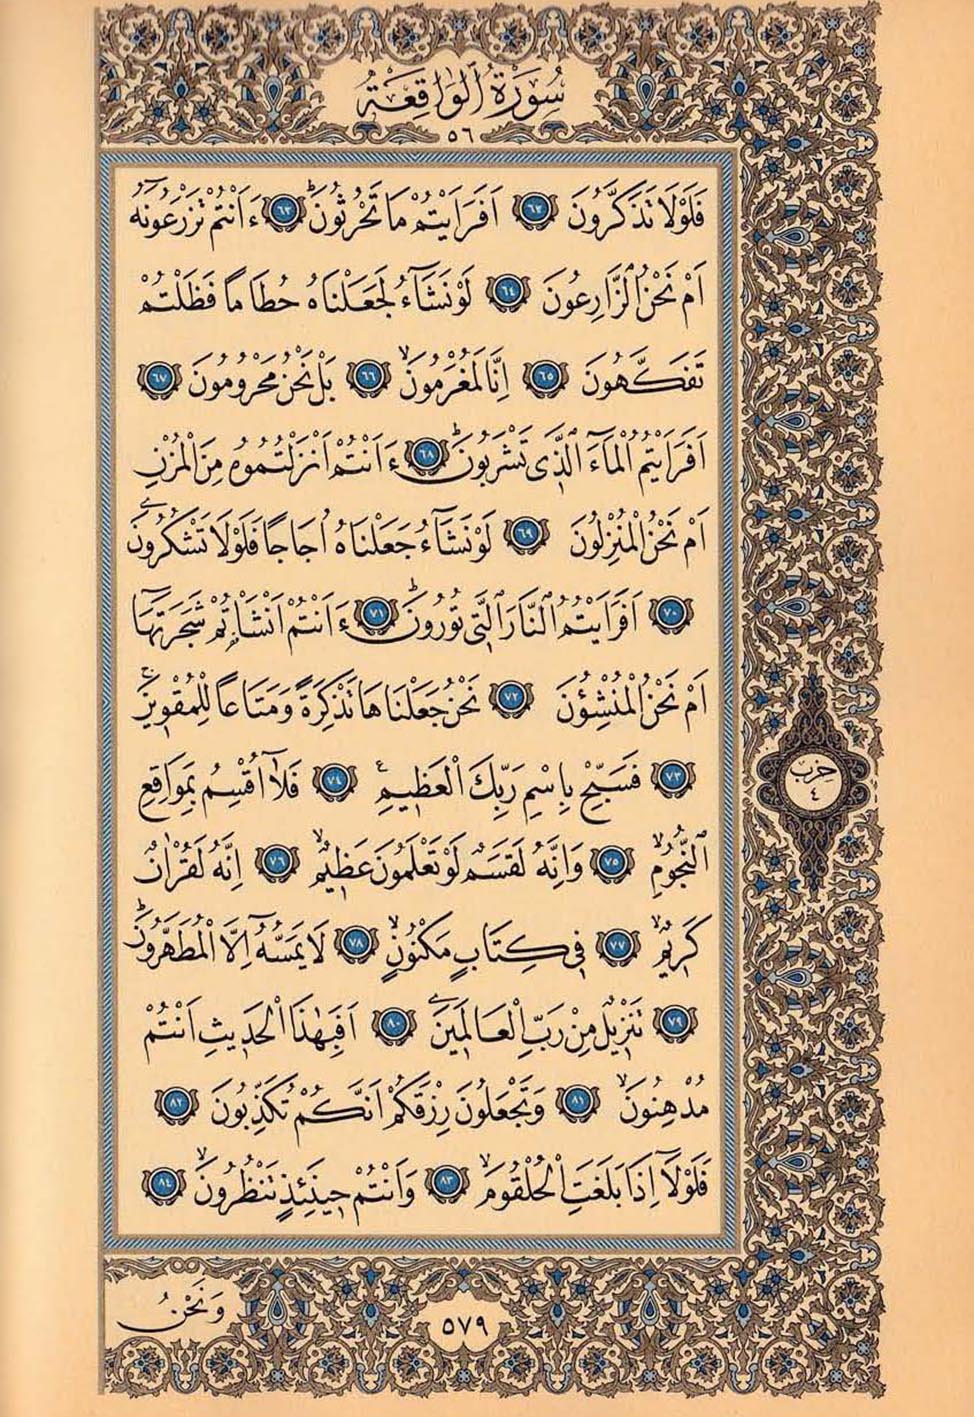 سُورَةُ الْوَاقِعَةِ
٥٦
فَلَوْلَا تَذَكَّرُونَ ﴿٦٢﴾ اَفَرَاَيْتُمْ مَا تَحْرُثُونَۜ ﴿٦٣﴾ ءَاَنْتُمْ تَزْرَعُونَهُٓ
اَمْ نَحْنُ الزَّارِعُونَ ﴿٦٤﴾ لَوْ نَشَٓاءُ لَجَعَلْنَاهُ حُطَامًا فَظَلْتُمْ
تَفَكَّهُونَ ﴿٦٥﴾ اِنَّا لَمُغْرَمُونَۙ ﴿٦٦﴾ بَلْ نَحْنُ مَحْرُومُونَ ﴿٦٧﴾
اَفَرَاَيْتُمُ الْمَٓاءَ الَّذٖي تَشْرَبُونَۜ ﴿٦٨﴾ ءَاَنْتُمْ اَنْزَلْتُمُوهُ مِنَ الْمُزْنِ
اَمْ نَحْنُ الْمُنْزِلُونَ ﴿٦٩﴾ لَوْ نَشَٓاءُ جَعَلْنَاهُ اُجَاجًا فَلَوْلَا تَشْكُرُونَ
﴿٧٠﴾ اَفَرَاَيْتُمُ النَّارَ الَّتٖي تُورُونَۜ ﴿٧١﴾ ءَاَنْتُمْ اَنْشَأْتُمْ شَجَرَتَهَٓا
اَمْ نَحْنُ الْمُنْشِؤُنَ ﴿٧٢﴾ نَحْنُ جَعَلْنَاهَا تَذْكِرَةً وَمَتَاعًا لِلْمُقْوٖينَۚ
﴿٧٣﴾ فَسَبِّحْ بِاسْمِ رَبِّكَ الْعَظٖيمِ ﴿٧٤﴾ فَلَٓا اُقْسِمُ بِمَوَاقِعِ
النُّجُومِۙ ﴿٧٥﴾ وَاِنَّهُ لَقَسَمٌ لَوْ تَعْلَمُونَ عَظٖيمٌۙ ﴿٧٦﴾ اِنَّهُ لَقُرْاٰنٌ
كَرٖيمٌۙ ﴿٧٧﴾ فٖي كِتَابٍ مَكْنُونٍۙ ﴿٧٨﴾ لَا يَمَسُّهُٓ اِلَّا الْمُطَهَّرُونَۜ
﴿٧٩﴾ تَنْزٖيلٌ مِنْ رَبِّ الْعَالَمٖينَ ﴿٨٠﴾ اَفَبِهٰذَا الْحَدٖيثِ اَنْتُمْ
مُدْهِنُونَۙ ﴿٨١﴾ وَتَجْعَلُونَ رِزْقَكُمْ اَنَّكُمْ تُكَذِّبُونَ ﴿٨٢﴾
فَلَوْلَٓا اِذَا بَلَغَتِ الْحُلْقُومَۙ ﴿٨٣﴾ وَاَنْتُمْ حٖينَئِذٍ تَنْظُرُونَۙ ﴿٨٤﴾
حزب
٤
وَنَحْنُ
٥٧٩